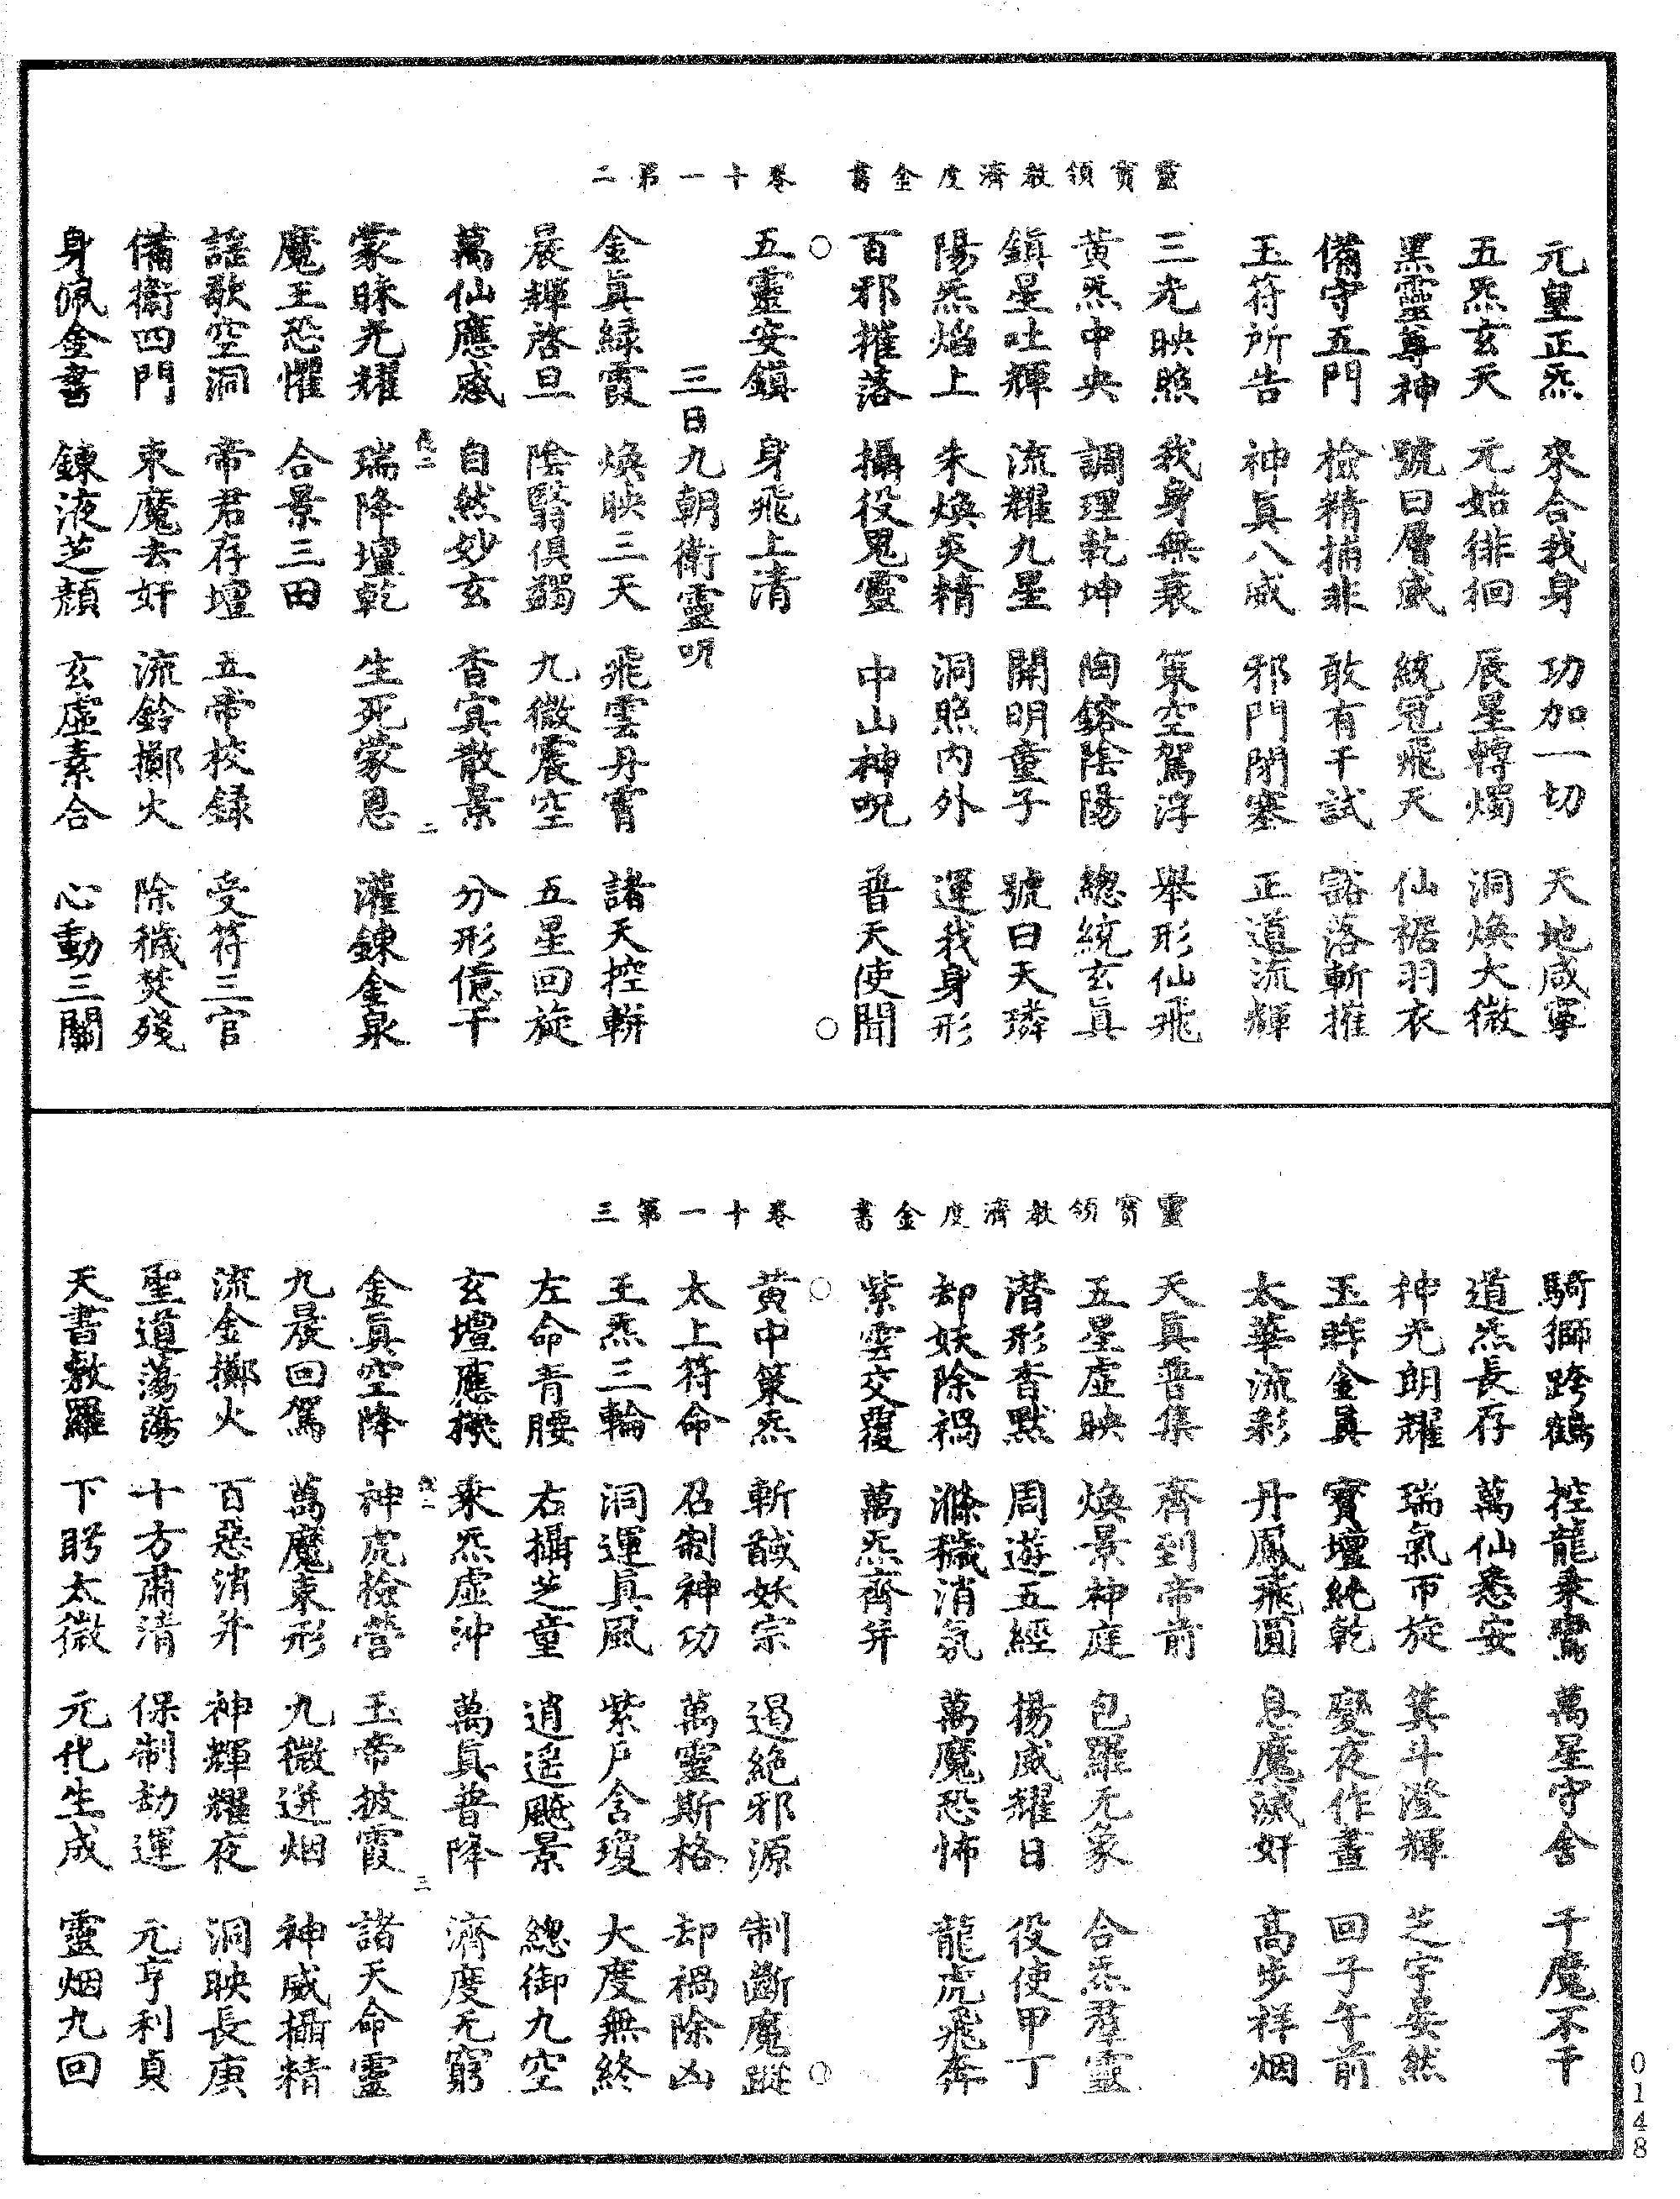 靈寶領教濟度金書　卷十一第二
元皇正炁　來合我身　功加一切　天地咸寧
五炁玄天　元始徘徊　辰星轉燭　洞煥太微
黑靈尊神　號曰層威　統冠飛天　仙裾羽衣
備守五門　檢精捕非　敢有干試　豁落斬摧
玉符所告　神眞八威　邪門閉塞　正道流輝
三光映照　我身無衰　策空駕浮　舉形仙飛
黃炁中央　調理乾坤　陶鎔陰陽　總統玄眞
鎮星吐輝　流耀九星　開明童子　號曰天璘
陽炁焰上　朱煥炎精　洞照內外　運我身形
百邪摧落　攝役鬼靈　中山神呪　普天使聞
五靈安鎮　身飛上清
三日九朝衛靈呪
金眞緑霞　煥映三天　飛雲丹霄　諸天控軿
晨輝啓旦　陰翳俱蠲　九微震空　五星回旋
萬仙應感　自然妙玄　杳冥散景　分形億千
蒙昧光耀　瑞降壇乾　生死蒙恩　灌鍊金泉
魔王恐懼　合景三田
謡歌空洞　帝君存壇　五帝校録　受符三官
備衛四門　束魔去奸　流鈴擲火　除穢焚殘
身佩金書　鍊液芝顏　玄虛素合　心動三關
靈寶領教濟度金書　卷十一第三
騎獅跨鶴　控龍乘鸞　萬星守舍　千魔不干
道炁長存　萬仙悉安
神光朗耀　瑞氣帀旋　箕斗澄輝　芝宇晏然
玉眸金眞　寶壇統乾　變夜作晝　回子午前
太華流彩　丹鳳飛圓　息魔滅奸　高步祥烟
天眞普集　齊到帝前
五星虛映　煥景神庭　包羅元象　合炁羣靈
潛形杳默　周遊五經　揚威耀日　役使甲丁
却妖除禍　滌穢消氛　萬魔恐怖　龍虎飛奔
紫雲交覆　萬炁齊并
黃中策炁　斬馘妖宗　遏絶邪源　制斷魔蹤
太上符命　召制神功　萬靈斯格　却禍除凶
王炁三輪　洞運眞風　紫戶含瓊　大度無終
左命青腰　右攝芝童　逍遥飈景　總御九空
玄壇應機　乘炁虛沖　萬眞普降　濟度无窮
金眞空降　神虎檢營　玉帝披霞　諸天命靈
九晨回駕　萬魔束形　九微迸烟　神威攝精
流金擲火　百惡消并　神輝耀夜　洞映長庚
聖道蕩蕩　十方肅清　保制劫運　元亨利貞
天書敷羅　下盻太微　元化生成　靈烟九回
0148